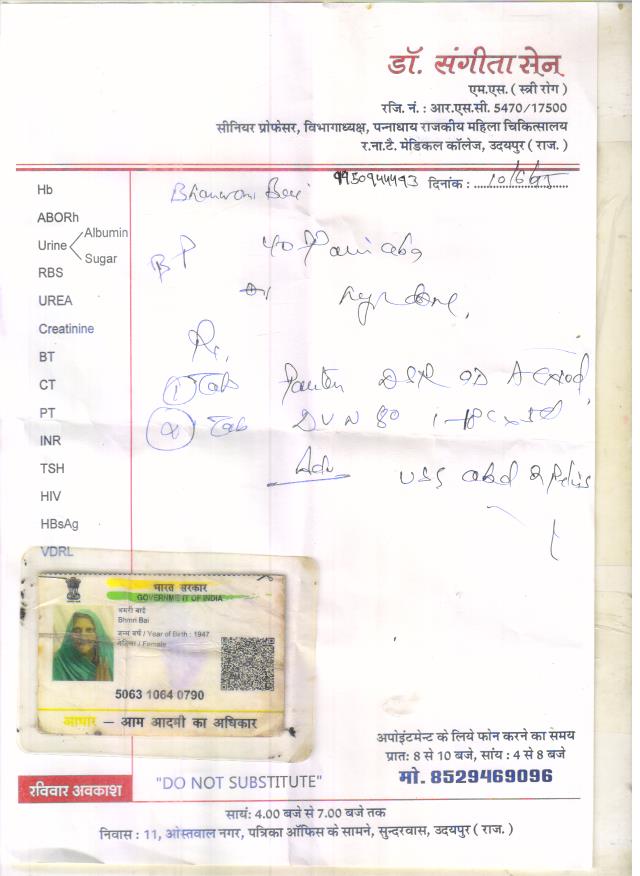 डॉ. संगीता सेन
एम.एस. ( स्त्री रोग )
रजि. नं. : आर.एस.सी. 5470/17500
सीनियर प्रोफेसर, विभागाध्यक्ष, पन्नाधाय राजकीय महिला चिकित्सालय
र.ना.टै. मेडिकल कॉलेज, उदयपुर ( राज. )
दिनांक :
Hb
ABORh
Urine Albumin
Sugar
RBS
UREA
Creatinine
BT
CT
PT
INR
TSH
HIV
HBsAg
VDRL
Rx,
① Tab DSR OD
② Tab 80
Adv USS abd & Pelvis
भारत सरकार
GOVERNMENT OF INDIA
भमरी बाई
Bhmri Bai
जन्म वर्ष / Year of Birth : 1947
महिला / Female
5063 1064 0790
आधार – आम आदमी का अधिकार
अपोइंटमेन्ट के लिये फोन करने का समय
प्रात: 8 से 10 बजे, सांय : 4 से 8 बजे
मो. 8529469096
रविवार अवकाश
"DO NOT SUBSTITUTE"
सायं: 4.00 बजे से 7.00 बजे तक
निवास : 11, ओस्तवाल नगर, पत्रिका ऑफिस के सामने, सुन्दरवास, उदयपुर ( राज. )